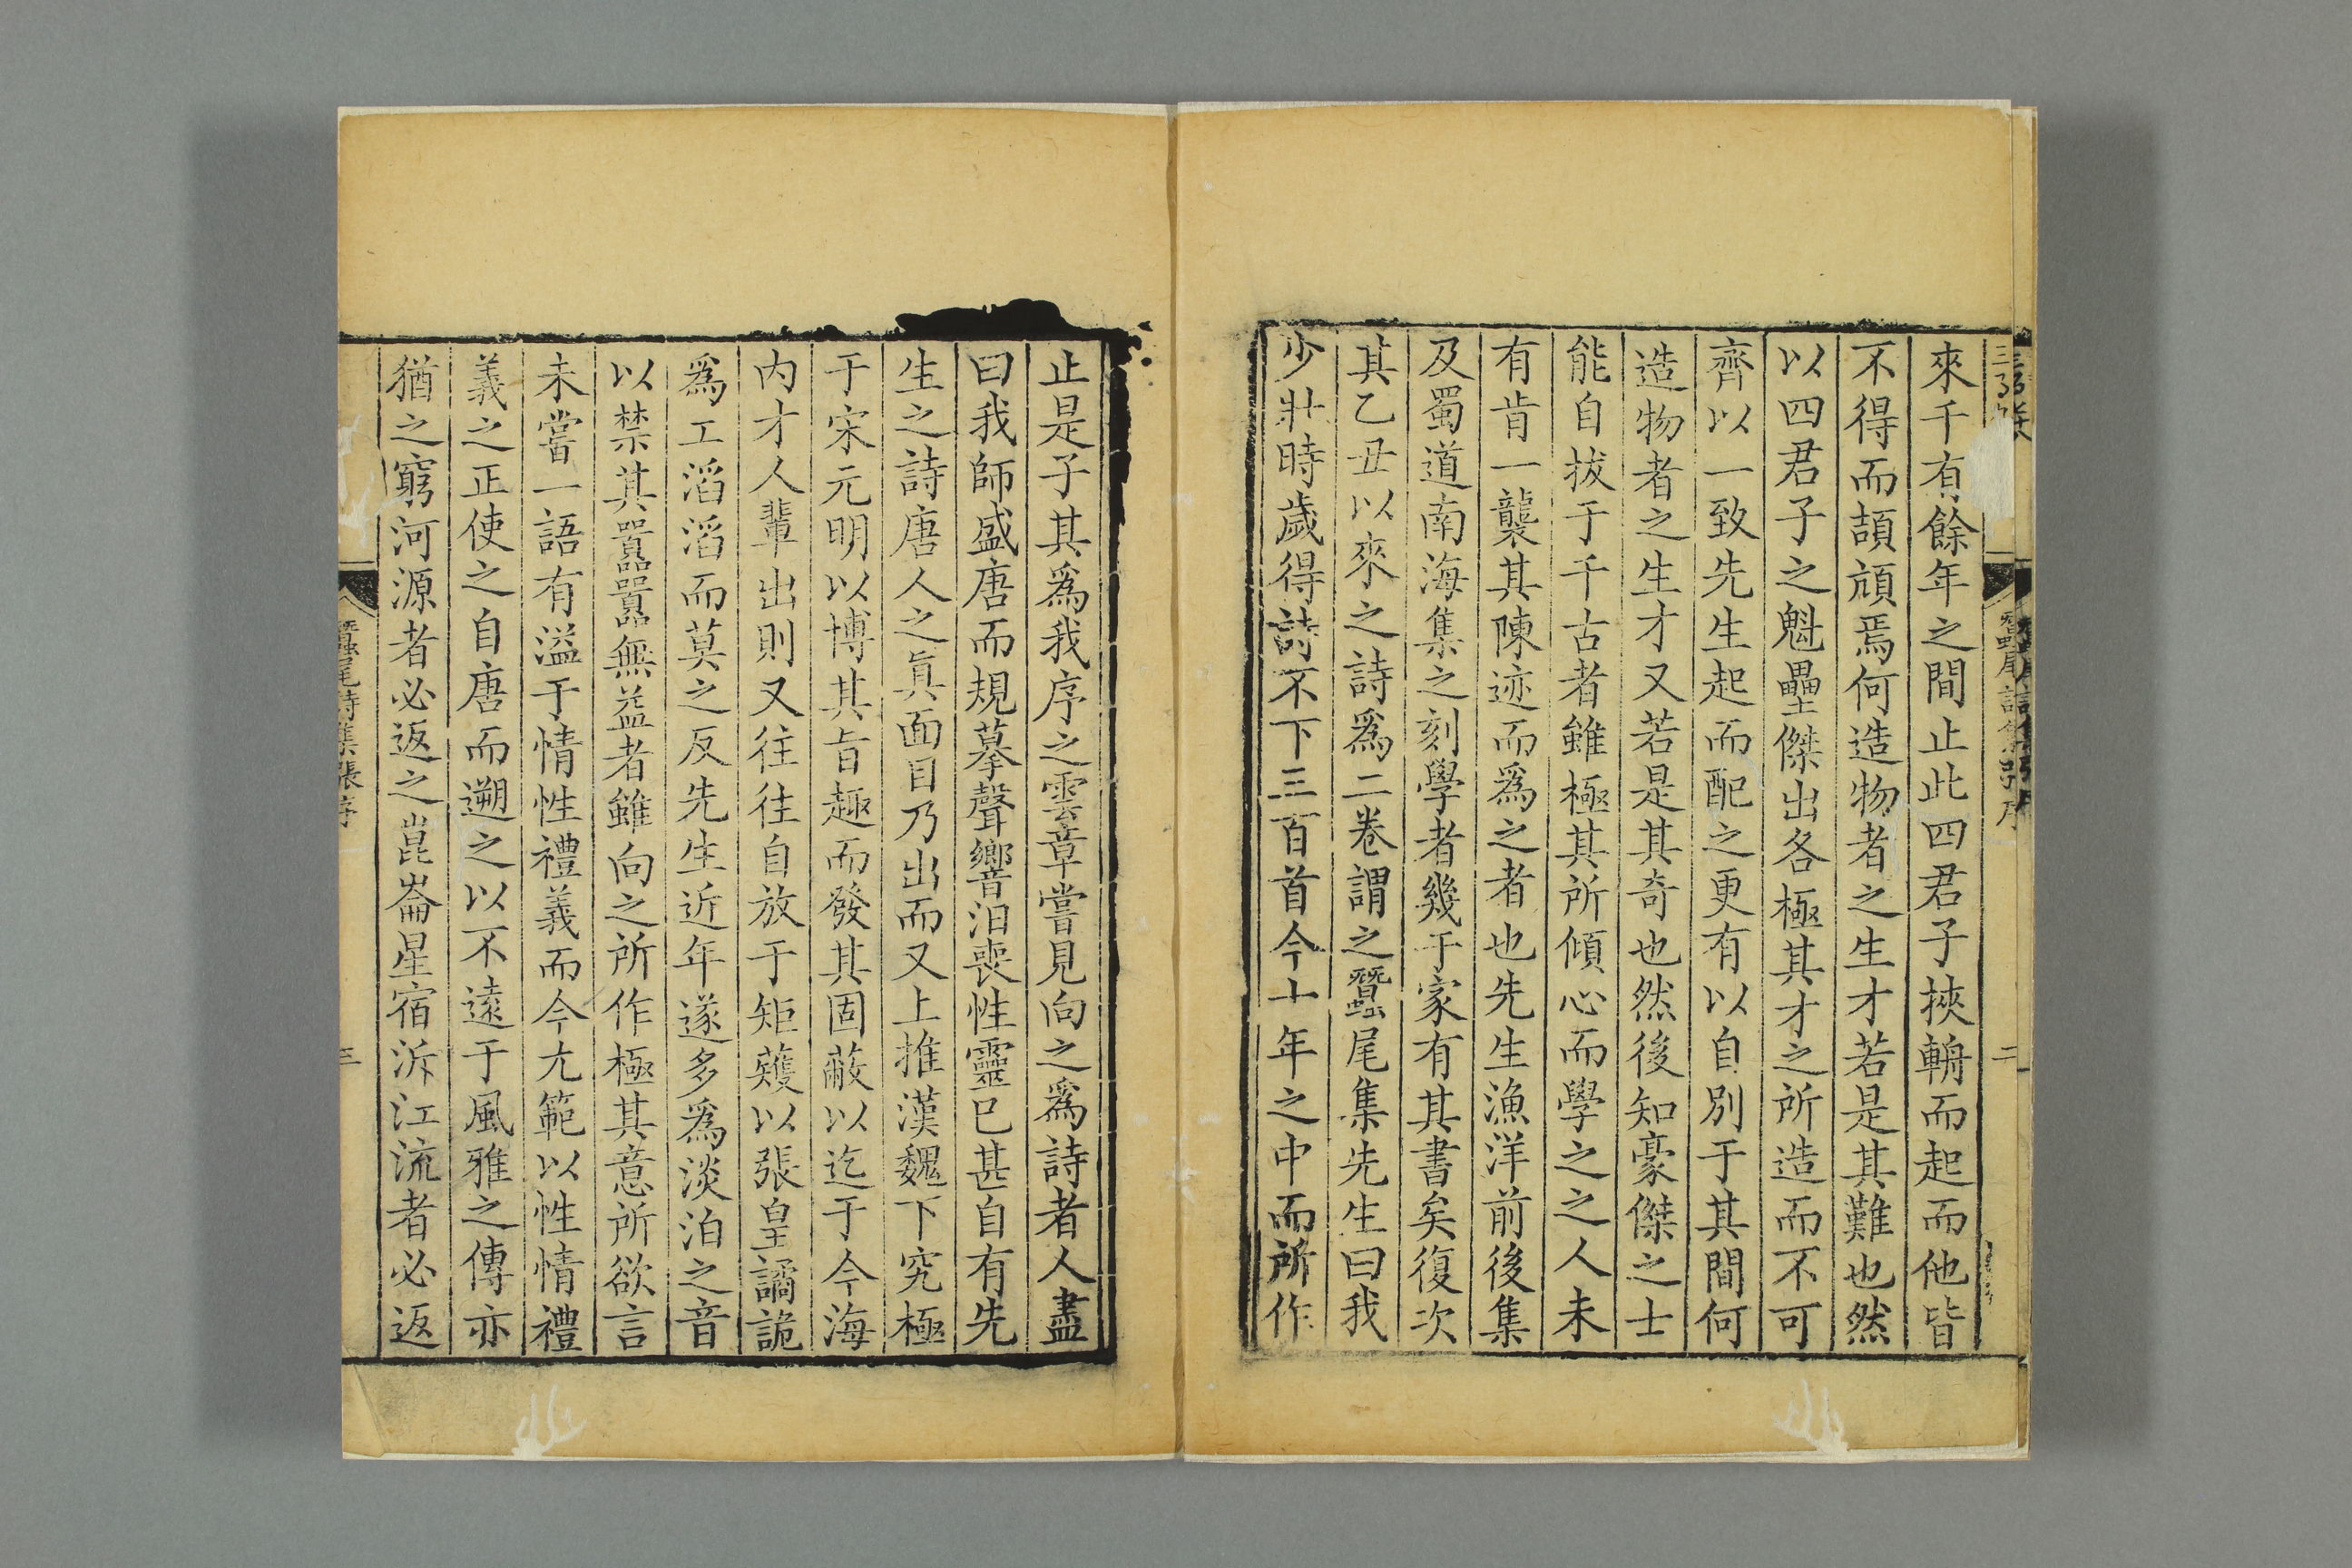 來千有餘年之間止此四君子挾輈而起而他皆
不得而頡頏焉何造物者之生才若是其難也然
以四君子之魁壘傑出各極其才之所造而不可
齊以一致先生起而配之更有以自別于其間何
造物者之生才又若是其奇也然後知豪傑之士
能自拔于千古者雖極其所傾心而學之之人未
有肯一襲其陳迹而爲之者也先生漁洋前後集
及蜀道南海集之刻學者幾于家有其書矣復次
其乙丑以來之詩爲二卷謂之蠶尾集先生曰我
少壯時歲得詩不下三百首今十年之中而所作
止是子其爲我序之雲章嘗見向之爲詩者人盡
曰我師盛唐而規摹聲響汩喪性靈已甚自有先
生之詩唐人之眞面目乃出而又上推漢魏下究極
于宋元明以博其旨趣而發其固蔽以迄于今海
内才人輩出則又往往自放于矩矱以張皇譎詭
爲工滔滔而莫之反先生近年遂多爲淡泊之音
以禁其囂囂無益者雖向之所作極其意所欲言
未嘗一語有溢于情性禮義而今尤範以性情禮
義之正使之自唐而遡之以不遠于風雅之傳亦
猶之窮河源者必返之崑崙星宿泝江流者必返
蠶尾詩集張序
三